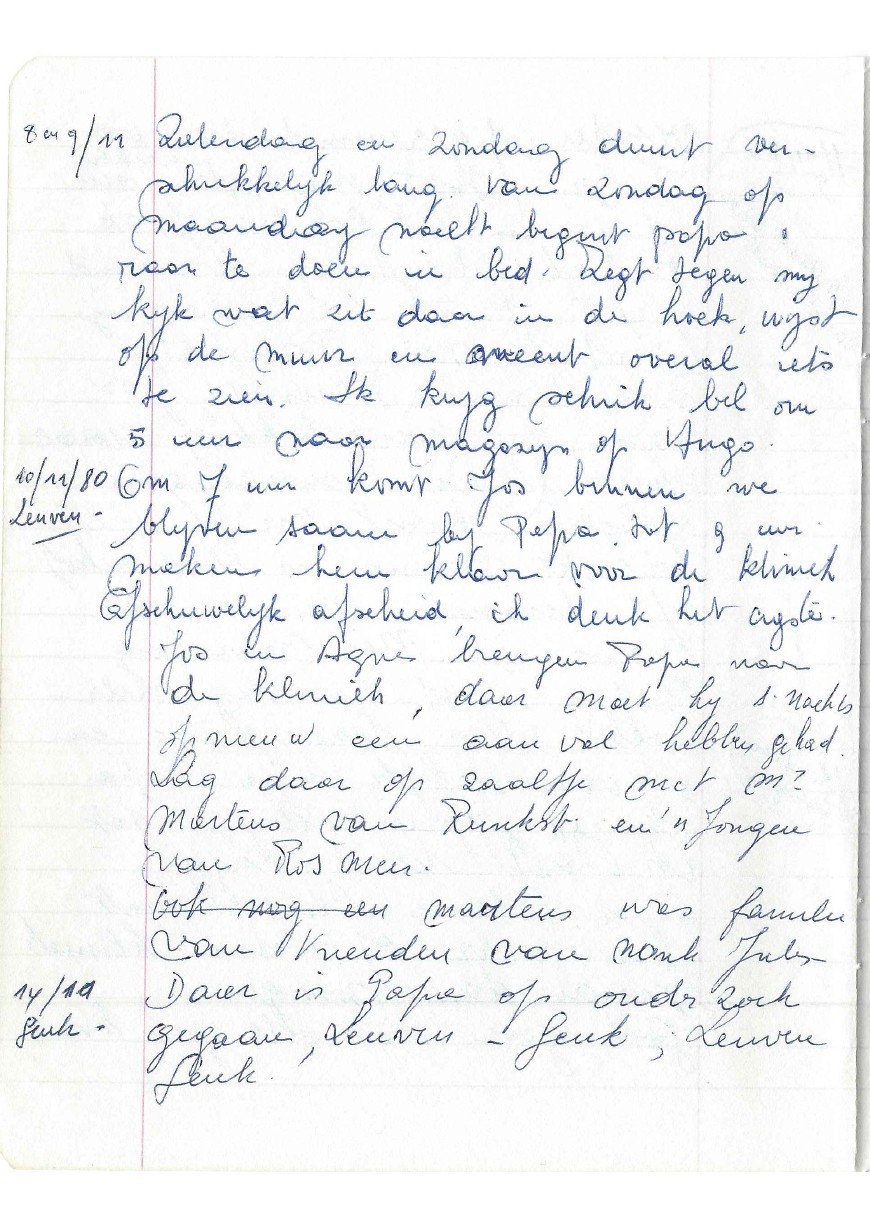 8 en 9/11 Zaterdag en zondag duurt ver-
schrikkelyk lang. Van zondag op
maandag nacht begint papa
raar te doen in bed. Zegt tegen my
kyk wat zit daar in de hoek, wyst
op de muur en meent overal iets
te zien. Ik kryg schrik bel om
5 uur naar magazyn op Hugo.
10/11/80 Om 7 uur komt Jos binnen we
Leuven - blyven saam by Papa tot 9 uur.
maken hem klaar voor de kliniek
Afschuwelyk afscheid, ich denk het ergste.
Jos en Agnes brengen Papa naar
de kliniek, daar moet hy s'nachts
opnieuw een aanval hebben gehad.
Lag daar op zaaltje met
Martens van Runkst. en 'n Jongen
van Rosmeer.
Ook nog een martens was familie
van Vrienden van nonk Jules
14/11 Daar is Papa op onderzoek
Genk - gegaan, Leuven - Genk; Leuven
Genk.